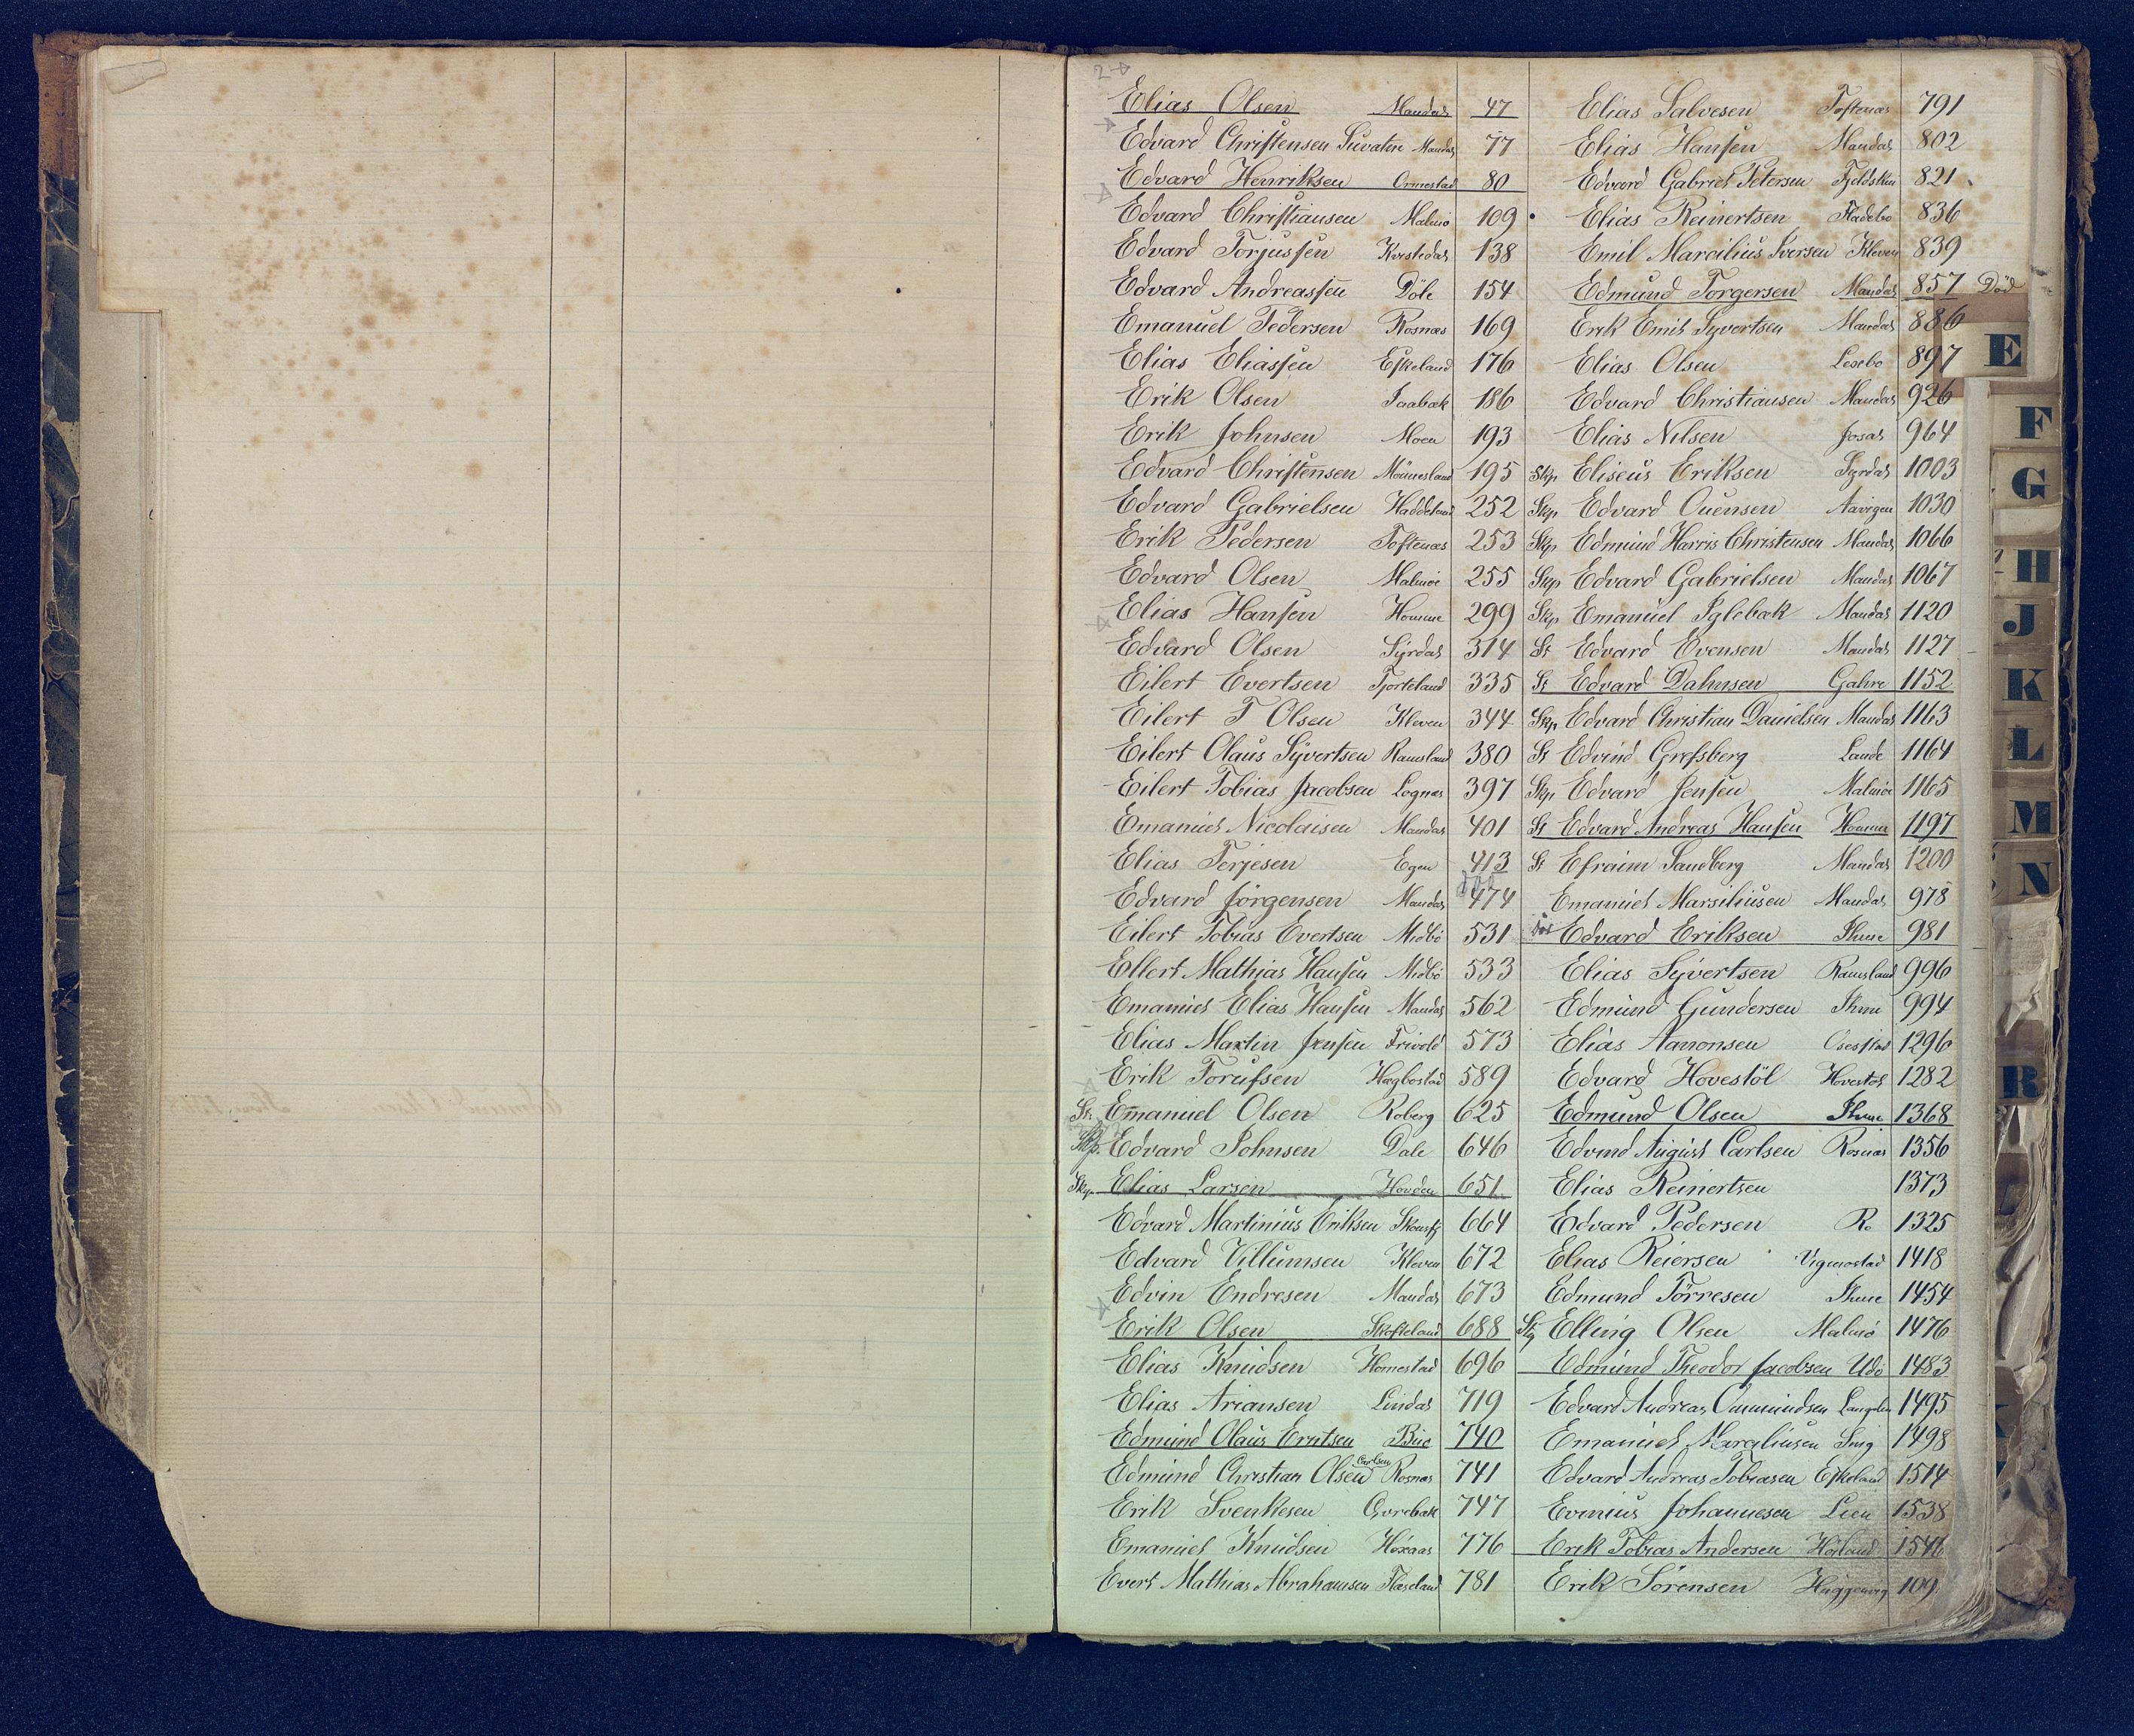 Elias Olsen Mandal 47
Edvard Christensen Mandal 77
Edvard Henriksen Ormestad 80
Edvard Christiansen Malmö 109
Edvard Torjussen 138
Edvard Andreassen Döle 154
Emanuel Pedersen Rosnæs 169
Elias Eliassen Eskeland 176
Erik Olsen 186
Erik Johnsen Moen 193
Edvard Christensen Mönnesland 195
Edvard Gabrielsen Haddeland 252
Erik Pedersen Toftenæs 253
Edvard Olsen Malmöe 255
Elias Hansen Homme 299
Edvard Olsen Syrdal 314
Eilert Evertsen Tjorteland 335
Eilert T Olsen Kleven 344
Eilert Olaus Syvertsen Ramsland 380
Eilert Tobias Jacobsen Lognæs 397
Emanuel Nicolaisen Mandal 401
Elias Terjesen Egen 413
Edvard Jörgensen Mandal 474
Eilert Tobias Evertsen Midbö 531
Ellert Mathias Hansen Midbö 533
Emanuel Elias Hansen Mandal 562
Elias Martin Jensen Frivold 573
Erik Torufsen Hægbostad 589
St. Emanuel Olsen Roberg 625
Skp. Edvard Johnsen Dale 646
Skp. Elias Larsen Hovden 651
Edvard Martinius Eriksen 664
Edvard Villumsen Kleven 672
Edvin Endresen Mandal 673
Erik Olsen Skofteland 688
Elias Knudsen Homestad 696
Elias Ariansen Lindal 719
Edmund Olaus Erntsen Bue 740
Edmund Christian Olsen Carlsen Rosnæs 741
Erik Svenkesen 747
Emanuel Knudsen Höxaas 776
Evert Mathias Abrahamsen Flaseland 781
Elias Salvesen Toftenæs 791
Elias Hansen Mandal 802
Edvard Gabriel Petersen 821
Elias Reinertsen Fladebo 836
Emil Marcilius Iversen Kleven 839
Edmund Torgersen Mandal 857 Död
Erik Emil Syvertsen Mandal 886
Elias Olsen 897
Edvard Christiansen Mandal 926
Elias Nilsen Josdal 964
Skp Eliseus Eriksen Syrdal 1003
Skp Edvard Ouensen Aavigen 1030
Skp Edmund Harris Christensen Mandal 1066
Skp Edvard Gabrielsen Mandal 1067
Skp Emanuel Iglebæk Mandal 1120
St Edvard Evensen Mandal 1127
St Edvard Dahnsen Gahre 1152
Skp. Edvard Christian Danielsen Mandal 1163
St Edvind Grefsberg Lande 1164
Skp. Edvard Jensen Malmöe 1165
St Edvard Andreas Hansen Homme 1197
St Efraim Sandberg Mandal 1200
Emanuel Marsiliusen Mandal 978
Edvard Eriksen Ihme 981
Elias Syvertsen Ramsland 996
Edmund Gundersen Ihme 994
Elias Aanonsen Osestad 1296
Edvard Hovestöl Hovestöl 1282
Edmund Olsen Ihme 1368
Edvind August Carlsen Rosnæs 1356
Elias Reinertsen 1373
Edvard Pedersen Ro 1325
Elias Reiersen Vigmostad 1418
Edmund Törresen Ihme 1454
Elling Olsen Malmö 1476
Edmund Theodor Jacobsen Udö 1483
Edvard Andreas Ommundsen 1495
Emanuel Marciliusen 1498
Edvard Andreas Tobiasen Eskeland 1514
Evinius Johannesen Lien 1538
Erik Tobias Andersen Höiland 1546
Erik Sörensen 109
E
F
G
H
J
K
L
M
N
R